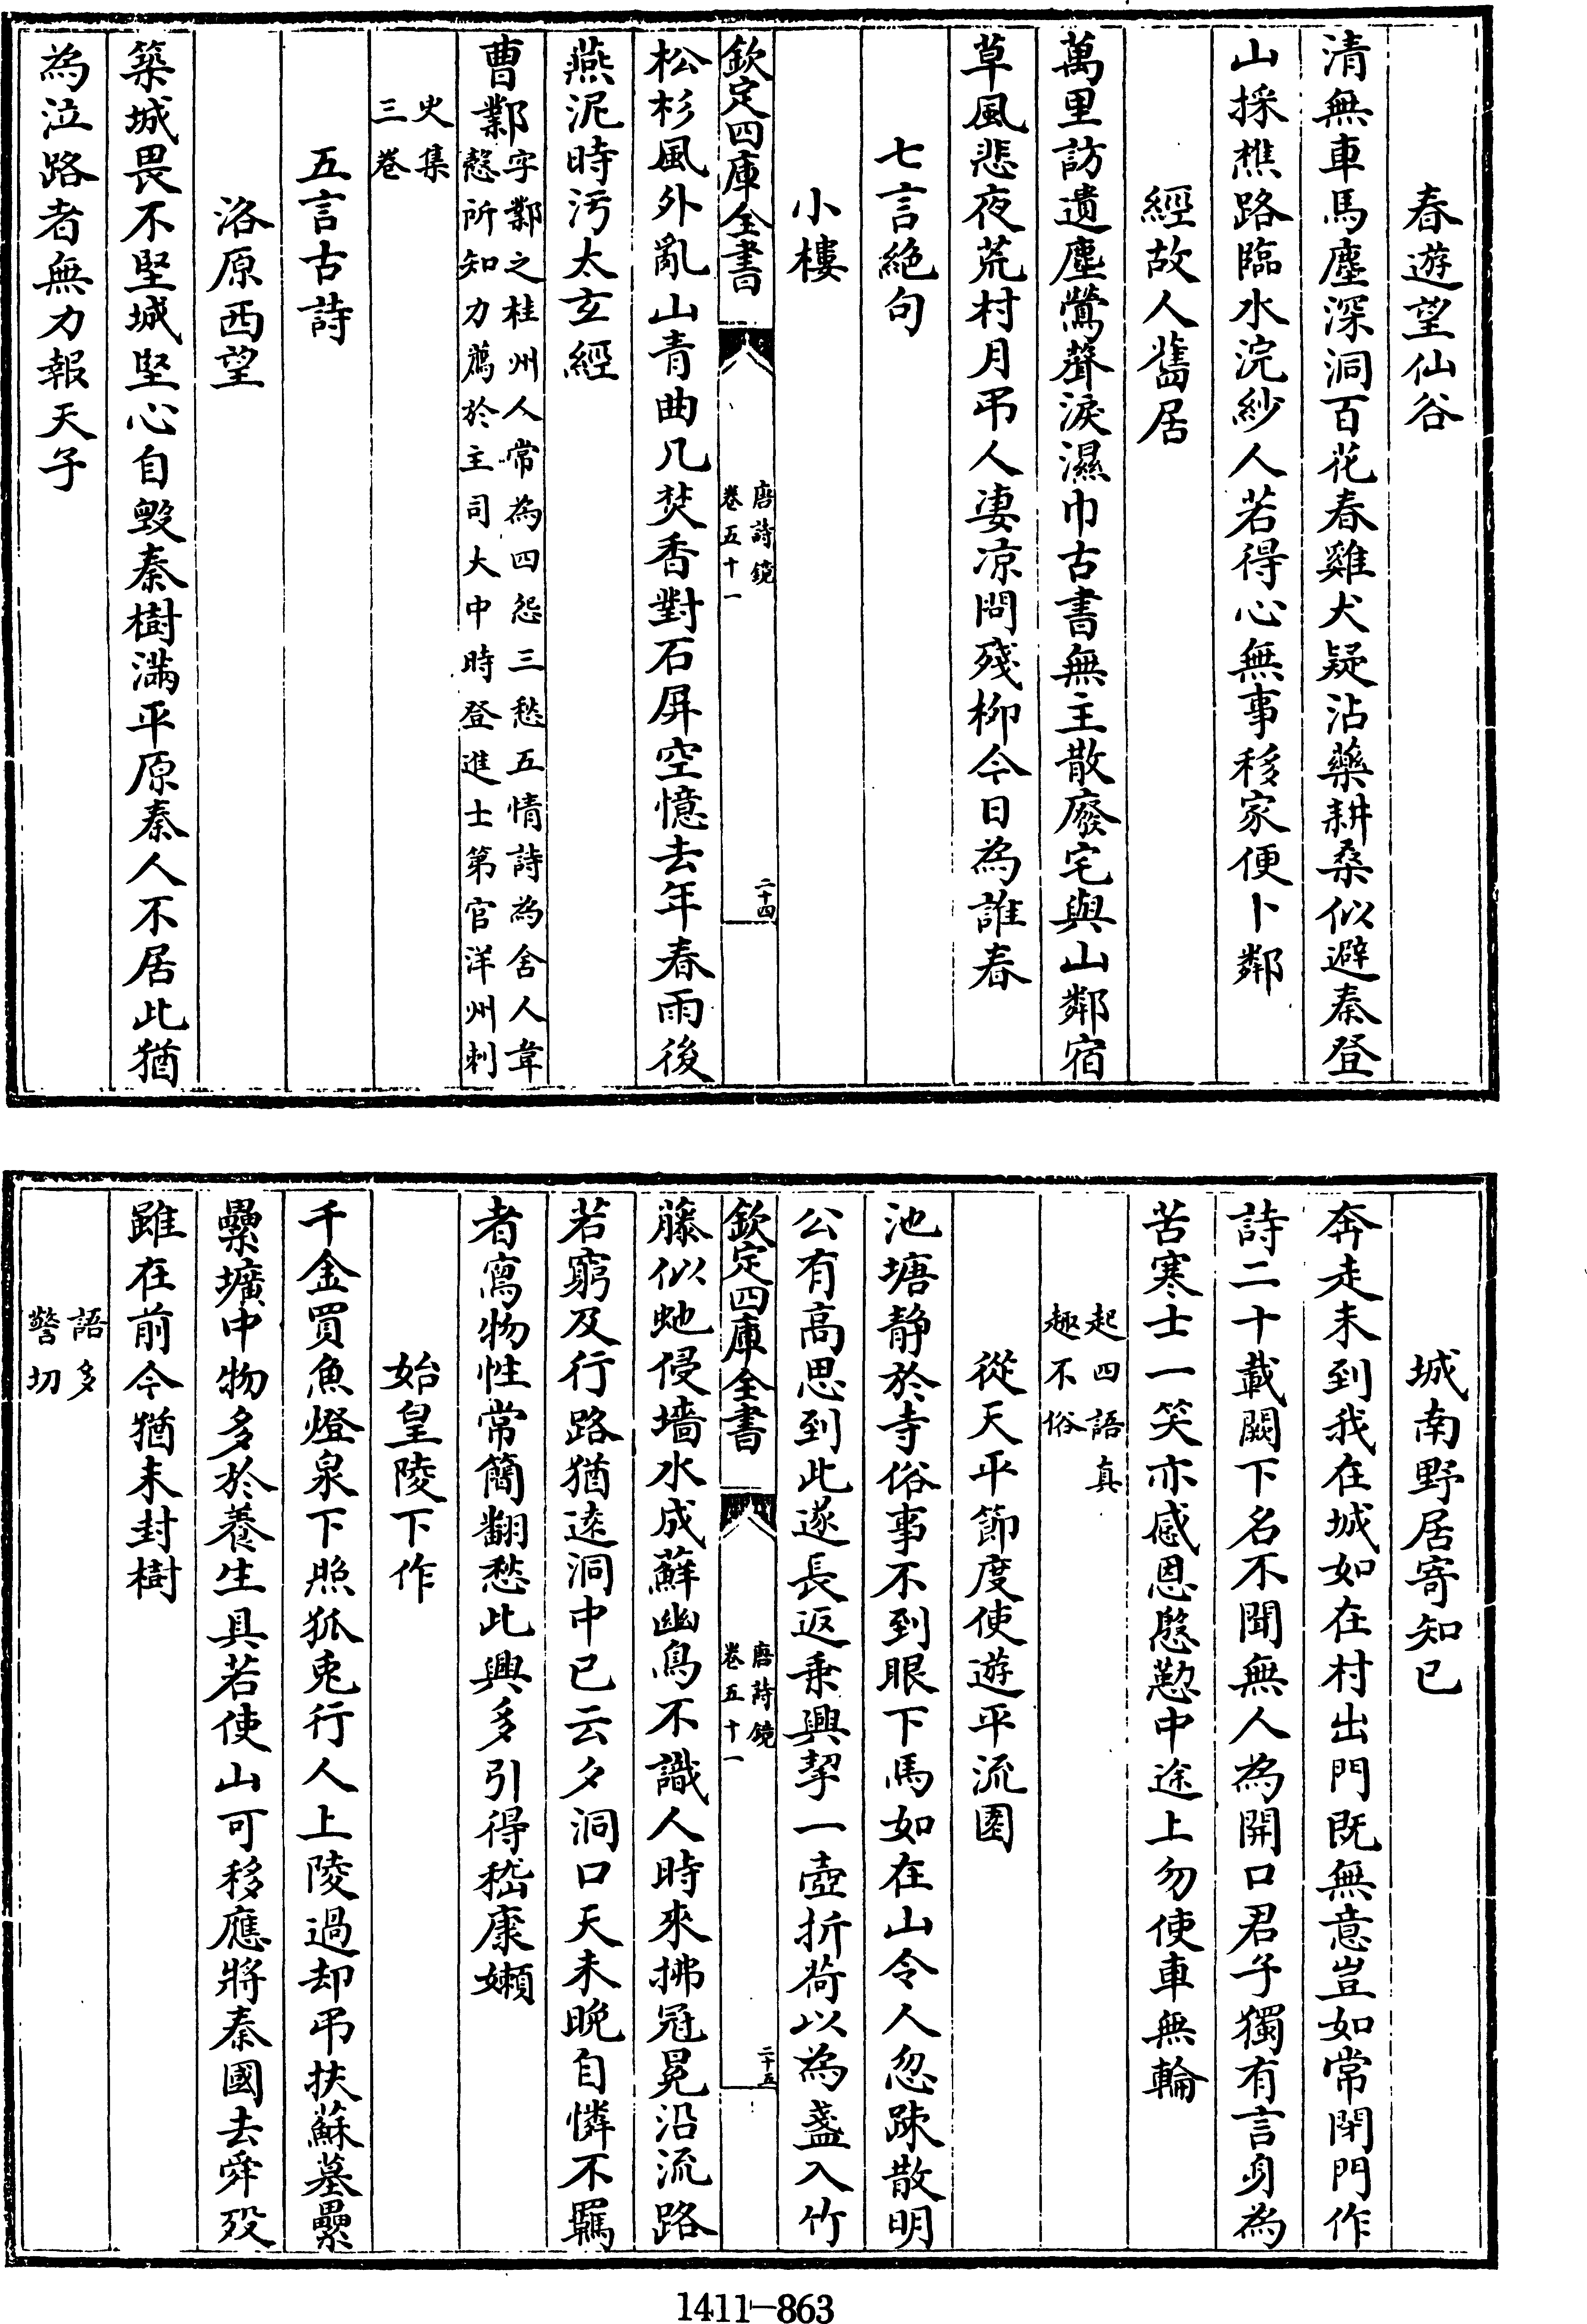 春遊望仙谷
清無車馬塵深洞百花春雞犬疑沾藥耕桑似避秦登
山採樵路臨水浣紗人若得心無事移家便卜鄰
經故人舊居
萬里訪遺塵鶯聲淚濕巾古書無主散廢宅與山鄰宿
草風悲夜荒村月弔人淒凉問殘柳今日為誰春
七言絶句
小樓
欽定四庫全書
唐詩鏡
卷五十一
二十四
松杉風外亂山青曲几焚香對石屏空憶去年春雨後
燕泥時污太玄經
曹鄴字鄴之桂州人常為四怨三愁五情詩為舍人韋
慤所知力薦於主司大中時登進士第官洋州刺
史集
三卷
五言古詩
洛原西望
築城畏不堅城堅心自毀秦樹滿平原秦人不居此猶
為泣路者無力報天子
城南野居寄知已
奔走未到我在城如在村出門既無意豈如常閉門作
詩二十載闕下名不聞無人為開口君子獨有言身為
苦寒士一笑亦感恩慇懃中途上勿使車無輪
起四語真
趣不俗
從天平節度使遊平流園
池塘静於寺俗事不到眼下馬如在山令人忽疎散明
公有高思到此遂長返乗興挈一壺折荷以為盞入竹
欽定四庫全書
唐詩鏡
卷五十一
二十五
藤似虵侵墻水成蘚幽鳥不識人時來拂冠冕沿流路
若窮及行路猶逺洞中已云夕洞口天未晚自憐不羈
者寫物性常簡翻愁此興多引得嵇康嬾
始皇陵下作
千金買魚燈泉下照狐兎行人上陵過却弔扶蘇墓纍
纍壙中物多於養生具若使山可移應將秦國去舜殁
雖在前今猶未封樹
語多
警切
1411—863